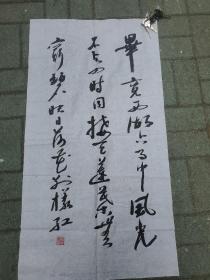 畢竟西湖六月中風光
不与四时同接天蓮葉無
窮碧映日荷花别樣红